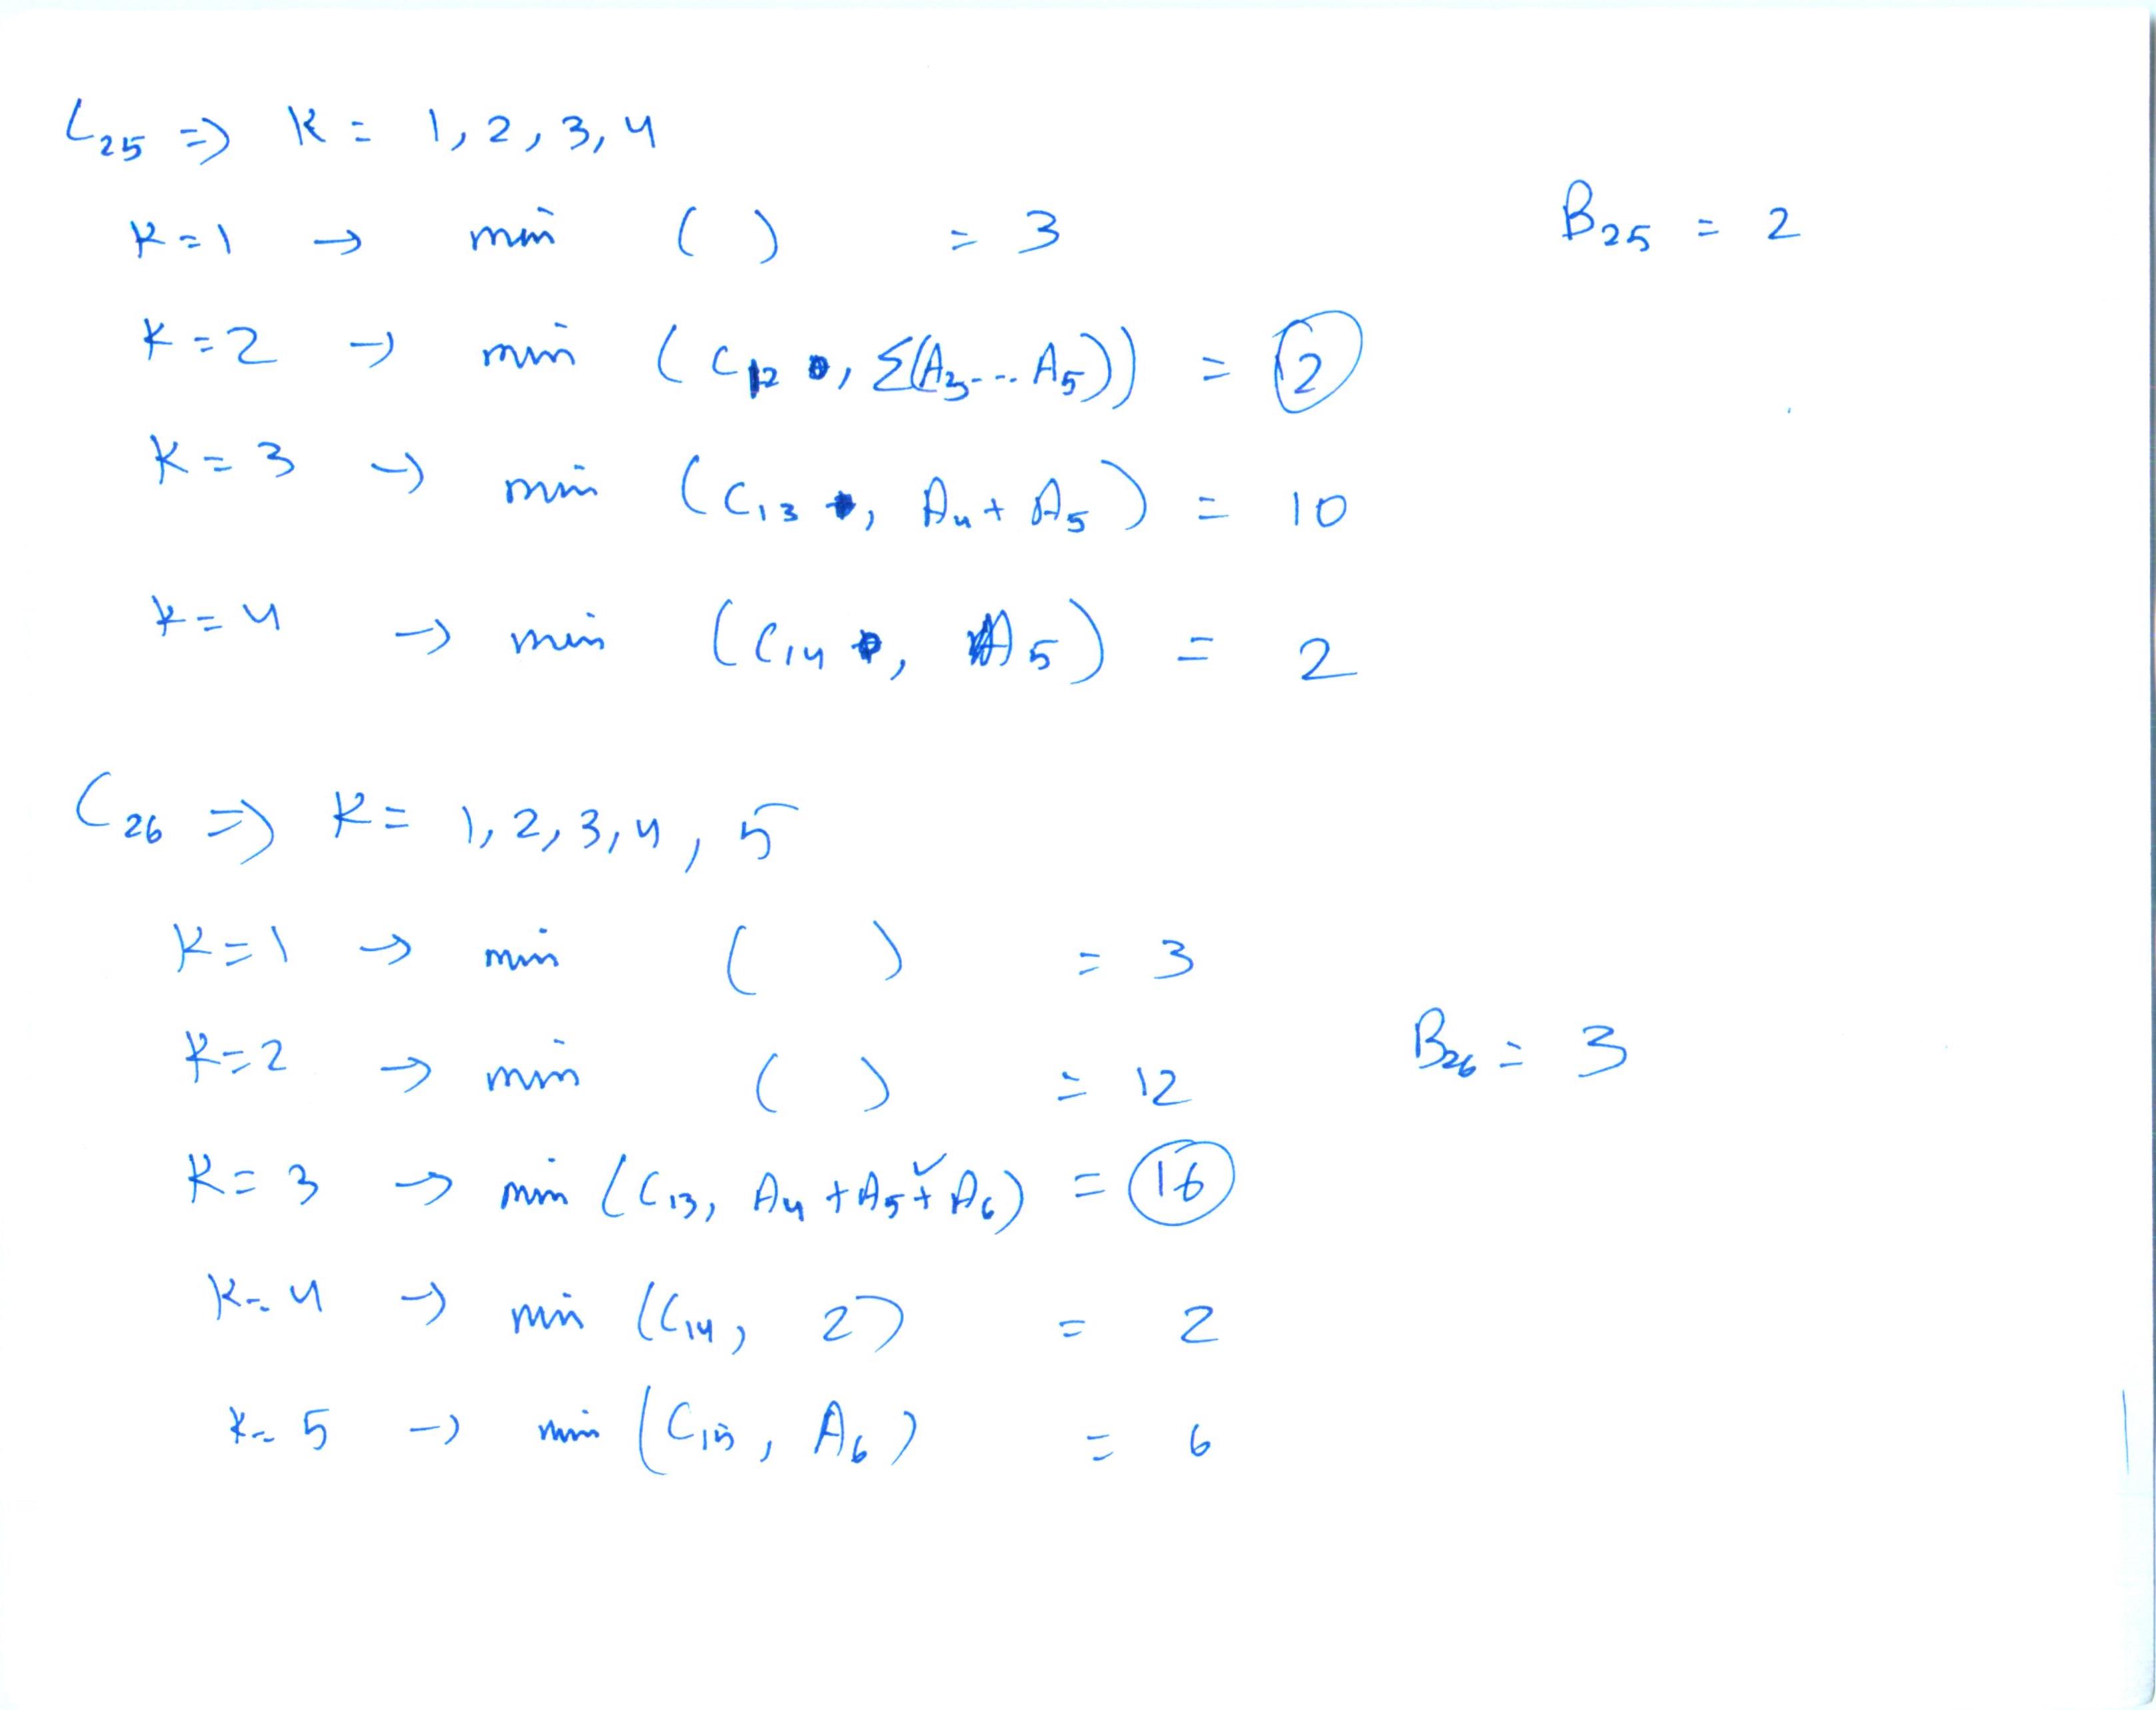 C₂₅ ⇒ K = 1, 2, 3, 4
K=1 → min ( ) = 3 B₂₅ = 2
K=2 → min (C₁₂, Σ(A₃...A₅)) = 12
K=3 → min (C₁₃, A₄+A₅) = 10
K=4 → min (C₁₄, A₅) = 2
C₂₆ ⇒ K = 1, 2, 3, 4, 5
K=1 → min ( ) = 3
K=2 → min ( ) = 12 B₂₆ = 3
K=3 → min (C₁₃, A₄+A₅+A₆) = 16
K=4 → min (C₁₄, 2) = 2
K=5 → min (C₁₅, A₆) = 6